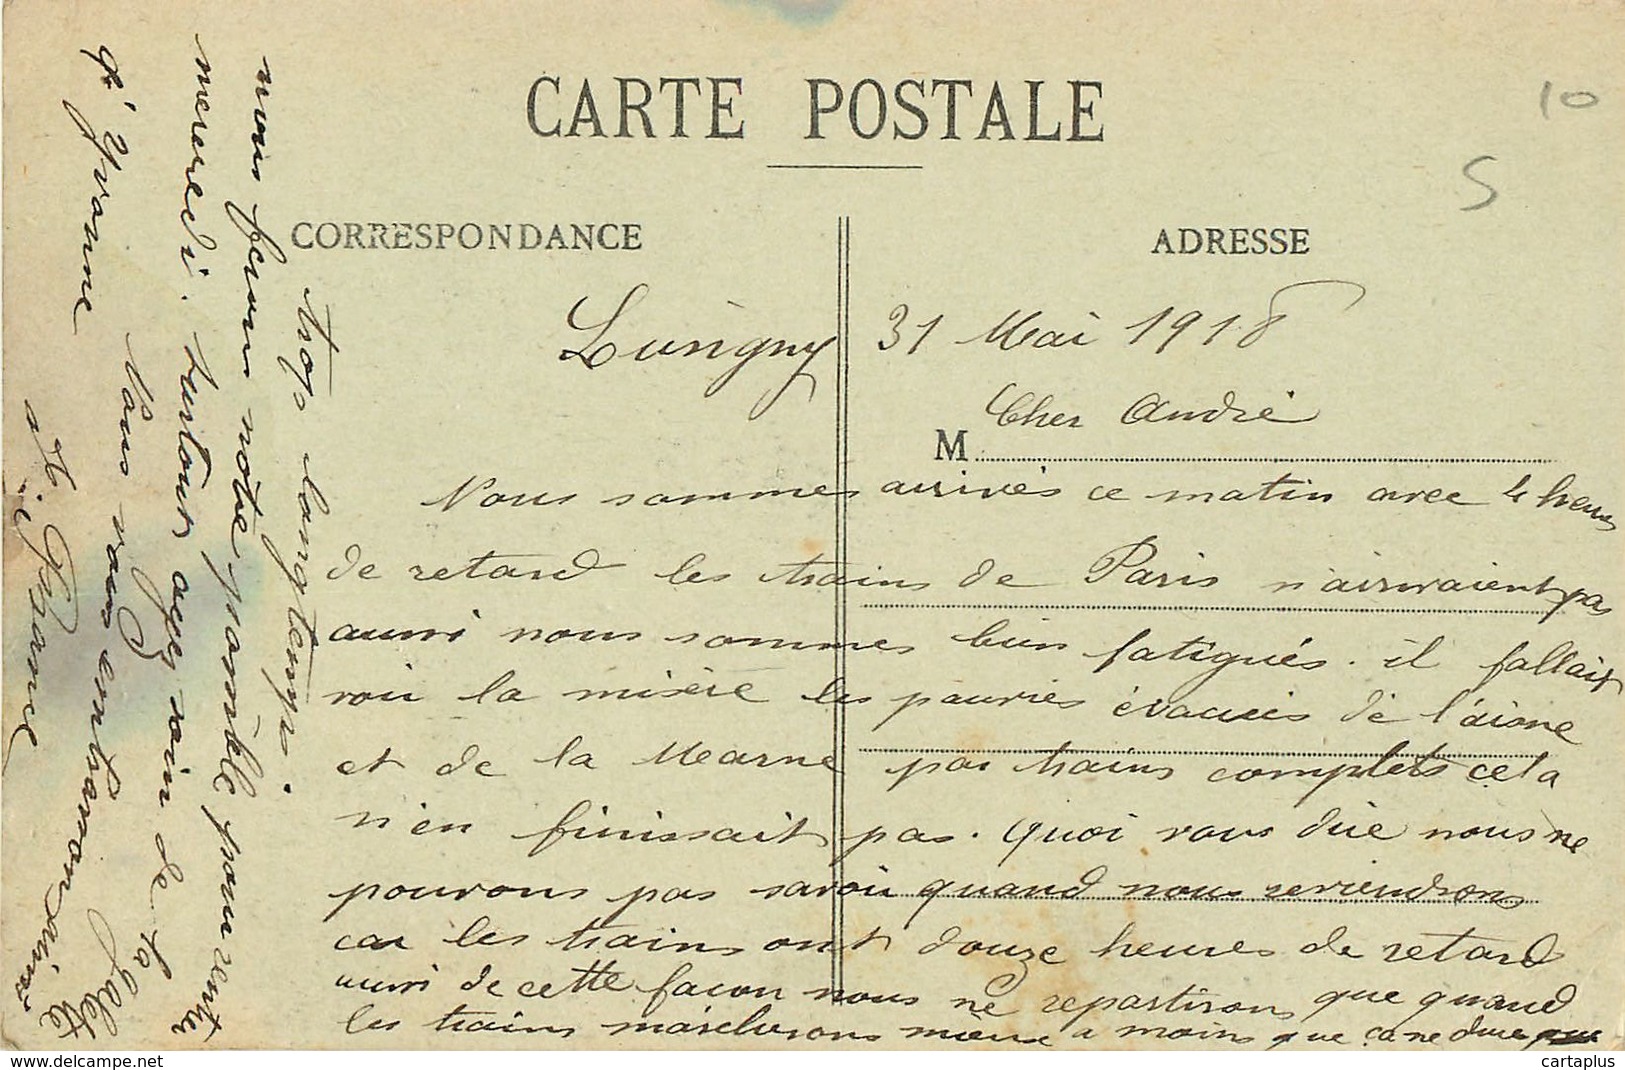 CARTE POSTALE
10
5
CORRESPONDANCE
ADRESSE
Lusigny 31 Mai 1918
Cher André
M
Nous sommes arrivés ce matin avec 4 heures
de retard les trains de Paris n'airrivaient pas
aussi nous sommes bien fatigués. il fallait
voir la misère les pauvres évacués de l'aisne
et de la Mearne par trains complets cela
n'en finissait pas. quoi vous dire nous ne
pourons pas savoir quand nous reviendrons
car les trains ont douze heures de retard
aussi de cette facon nous ne repartirons que quand
les trains marcherons mieux a moins que ça ne dure
trop longtemps.
nous ferons notre possible pour rentrer
mercredi. surtout ayez soin de la
d'Yvonne
Vous vous embrassons
H. France
cartaplus